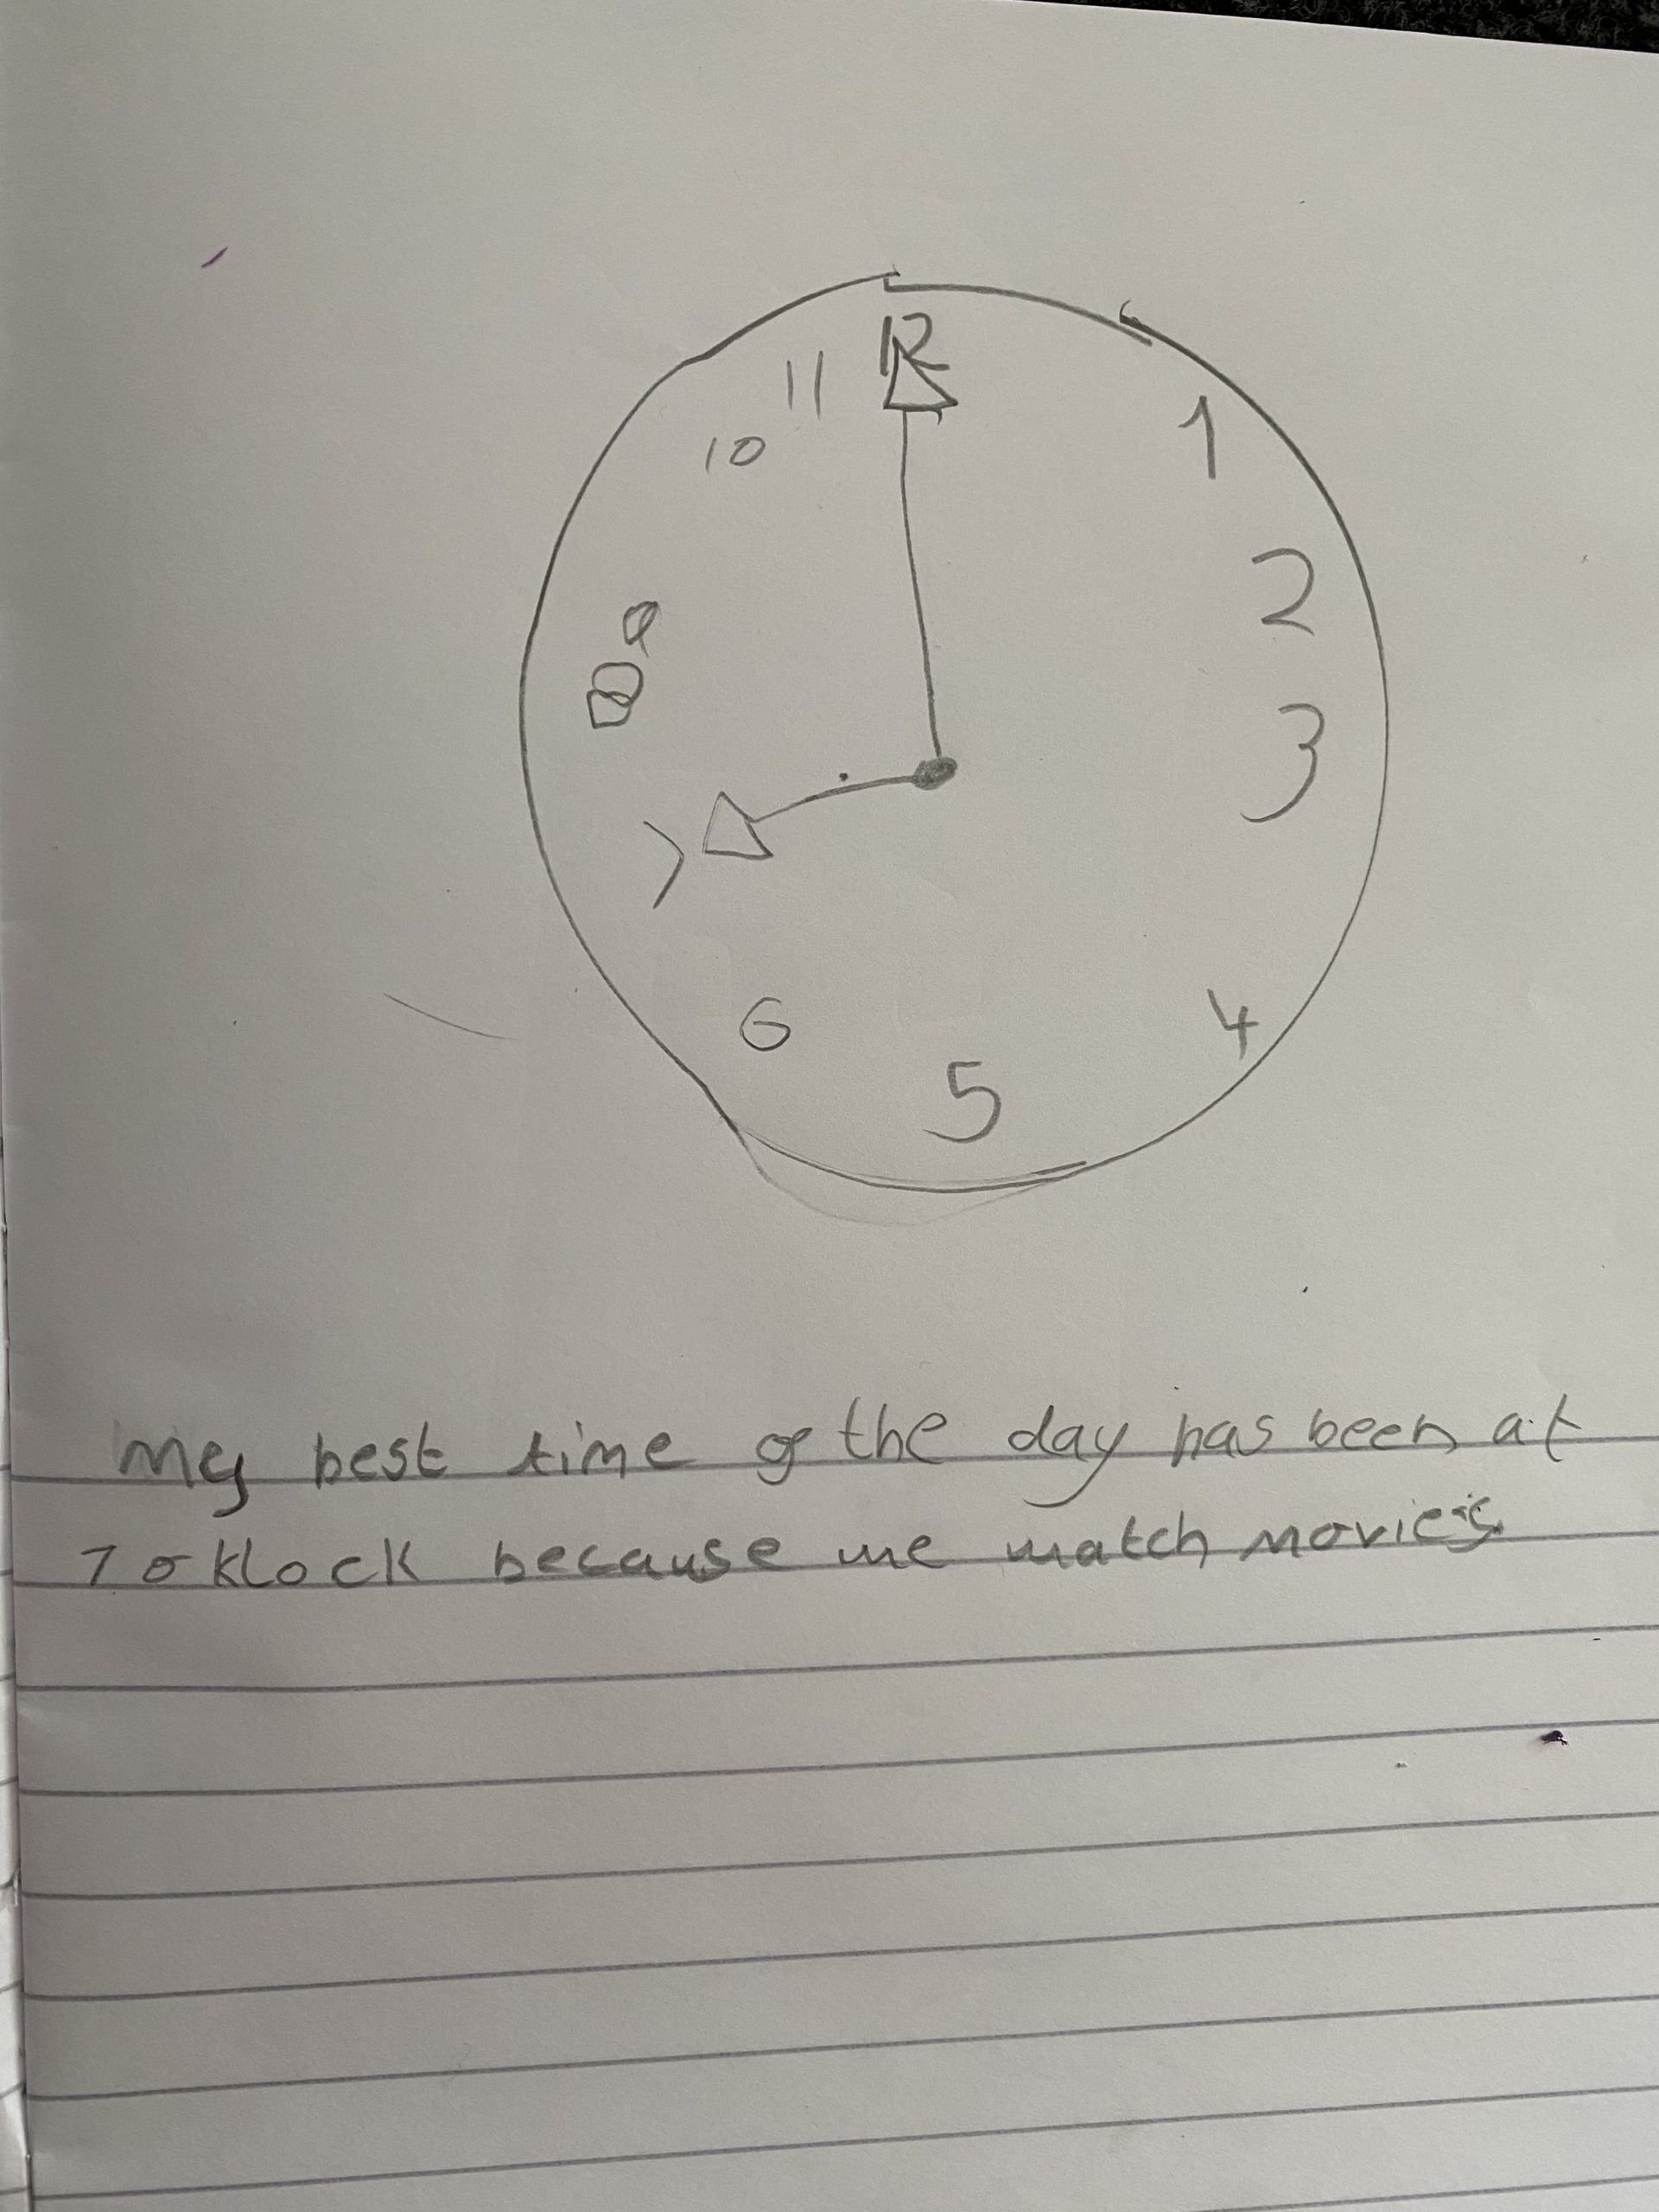 12
11
1
10
2
9
8
3
7
6
4
5
My best time of the day has been at
7 o klock because we watch movies